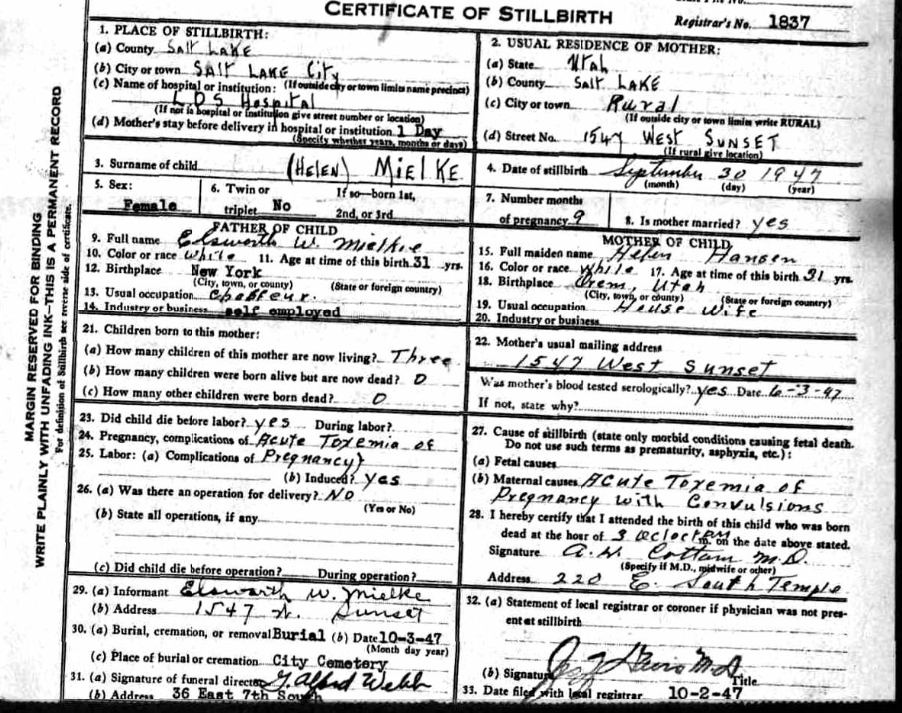 CERTIFICATE OF STILLBIRTH
Registrar's No. 1837
MARGIN RESERVED FOR BINDING
WRITE PLAINLY WITH UNFADING INK—THIS IS A PERMANENT RECORD
For definition of Stillbirth see reverse side of certificate.
1. PLACE OF STILLBIRTH:
(a) County Salt Lake
(b) City or town SALT LAKE City
(If outside city or town limits name precinct)
(c) Name of hospital or institution:
LDS Hospital
(If not in hospital or institution give street number or location)
(d) Mother's stay before delivery in hospital or institution 1 Day
(Specify whether years, months or days)
2. USUAL RESIDENCE OF MOTHER:
(a) State Utah
(b) County SALT LAKE
(c) City or town Rural
(If outside city or town limits write RURAL)
(d) Street No. 1547 WEST SUNSET
(If rural give location)
3. Surname of child (HELEN) MIELKE
4. Date of stillbirth September 30 1947
(month) (day) (year)
5. Sex: Female
6. Twin or triplet No
If so—born 1st, 2nd, or 3rd
7. Number months of pregnancy 9
8. Is mother married? yes
FATHER OF CHILD
9. Full name Elsworth W. Mielke
10. Color or race White 11. Age at time of this birth 31 yrs.
12. Birthplace New York
(City, town, or county) (State or foreign country)
13. Usual occupation Choffeur.
14. Industry or business self employed
MOTHER OF CHILD
15. Full maiden name Helen Hansen
16. Color or race White 17. Age at time of this birth 31 yrs.
18. Birthplace Orem, Utah
(City, town, or county) (State or foreign country)
19. Usual occupation House Wife
20. Industry or business
21. Children born to this mother:
(a) How many children of this mother are now living? Three
(b) How many children were born alive but are now dead? 0
(c) How many other children were born dead? 0
22. Mother's usual mailing address
1547 West Sunset
Was mother's blood tested serologically? yes Date 6-3-47
If not, state why?
23. Did child die before labor? yes During labor?
24. Pregnancy, complications of Acute Toxemia of
25. Labor: (a) Complications of Pregnancy}
(b) Induced? Yes
26. (a) Was there an operation for delivery? NO
(Yes or No)
(b) State all operations, if any
(c) Did child die before operation? During operation?
27. Cause of stillbirth (state only morbid conditions causing fetal death.
Do not use such terms as prematurity, asphyxia, etc.):
(a) Fetal causes
(b) Maternal causes Acute Toxemia of
Pregnancy with Convulsions
28. I hereby certify that I attended the birth of this child who was born
dead at the hour of 3 m. on the date above stated.
Signature A. W. Cottam M.D.
(Specify if M.D., midwife or other)
Address 220 E. South Temple
29. (a) Informant Elsworth W. Mielke
(b) Address 1547 W. Sunset
30. (a) Burial, cremation, or removal Burial (b) Date 10-3-47
(Month day year)
(c) Place of burial or cremation City Cemetery
31. (a) Signature of funeral director Alfred Webb
(b) Address 36 East 7th South
32. (a) Statement of local registrar or coroner if physician was not pres-
ent at stillbirth
(b) Signature Title
33. Date filed with local registrar 10-2-47